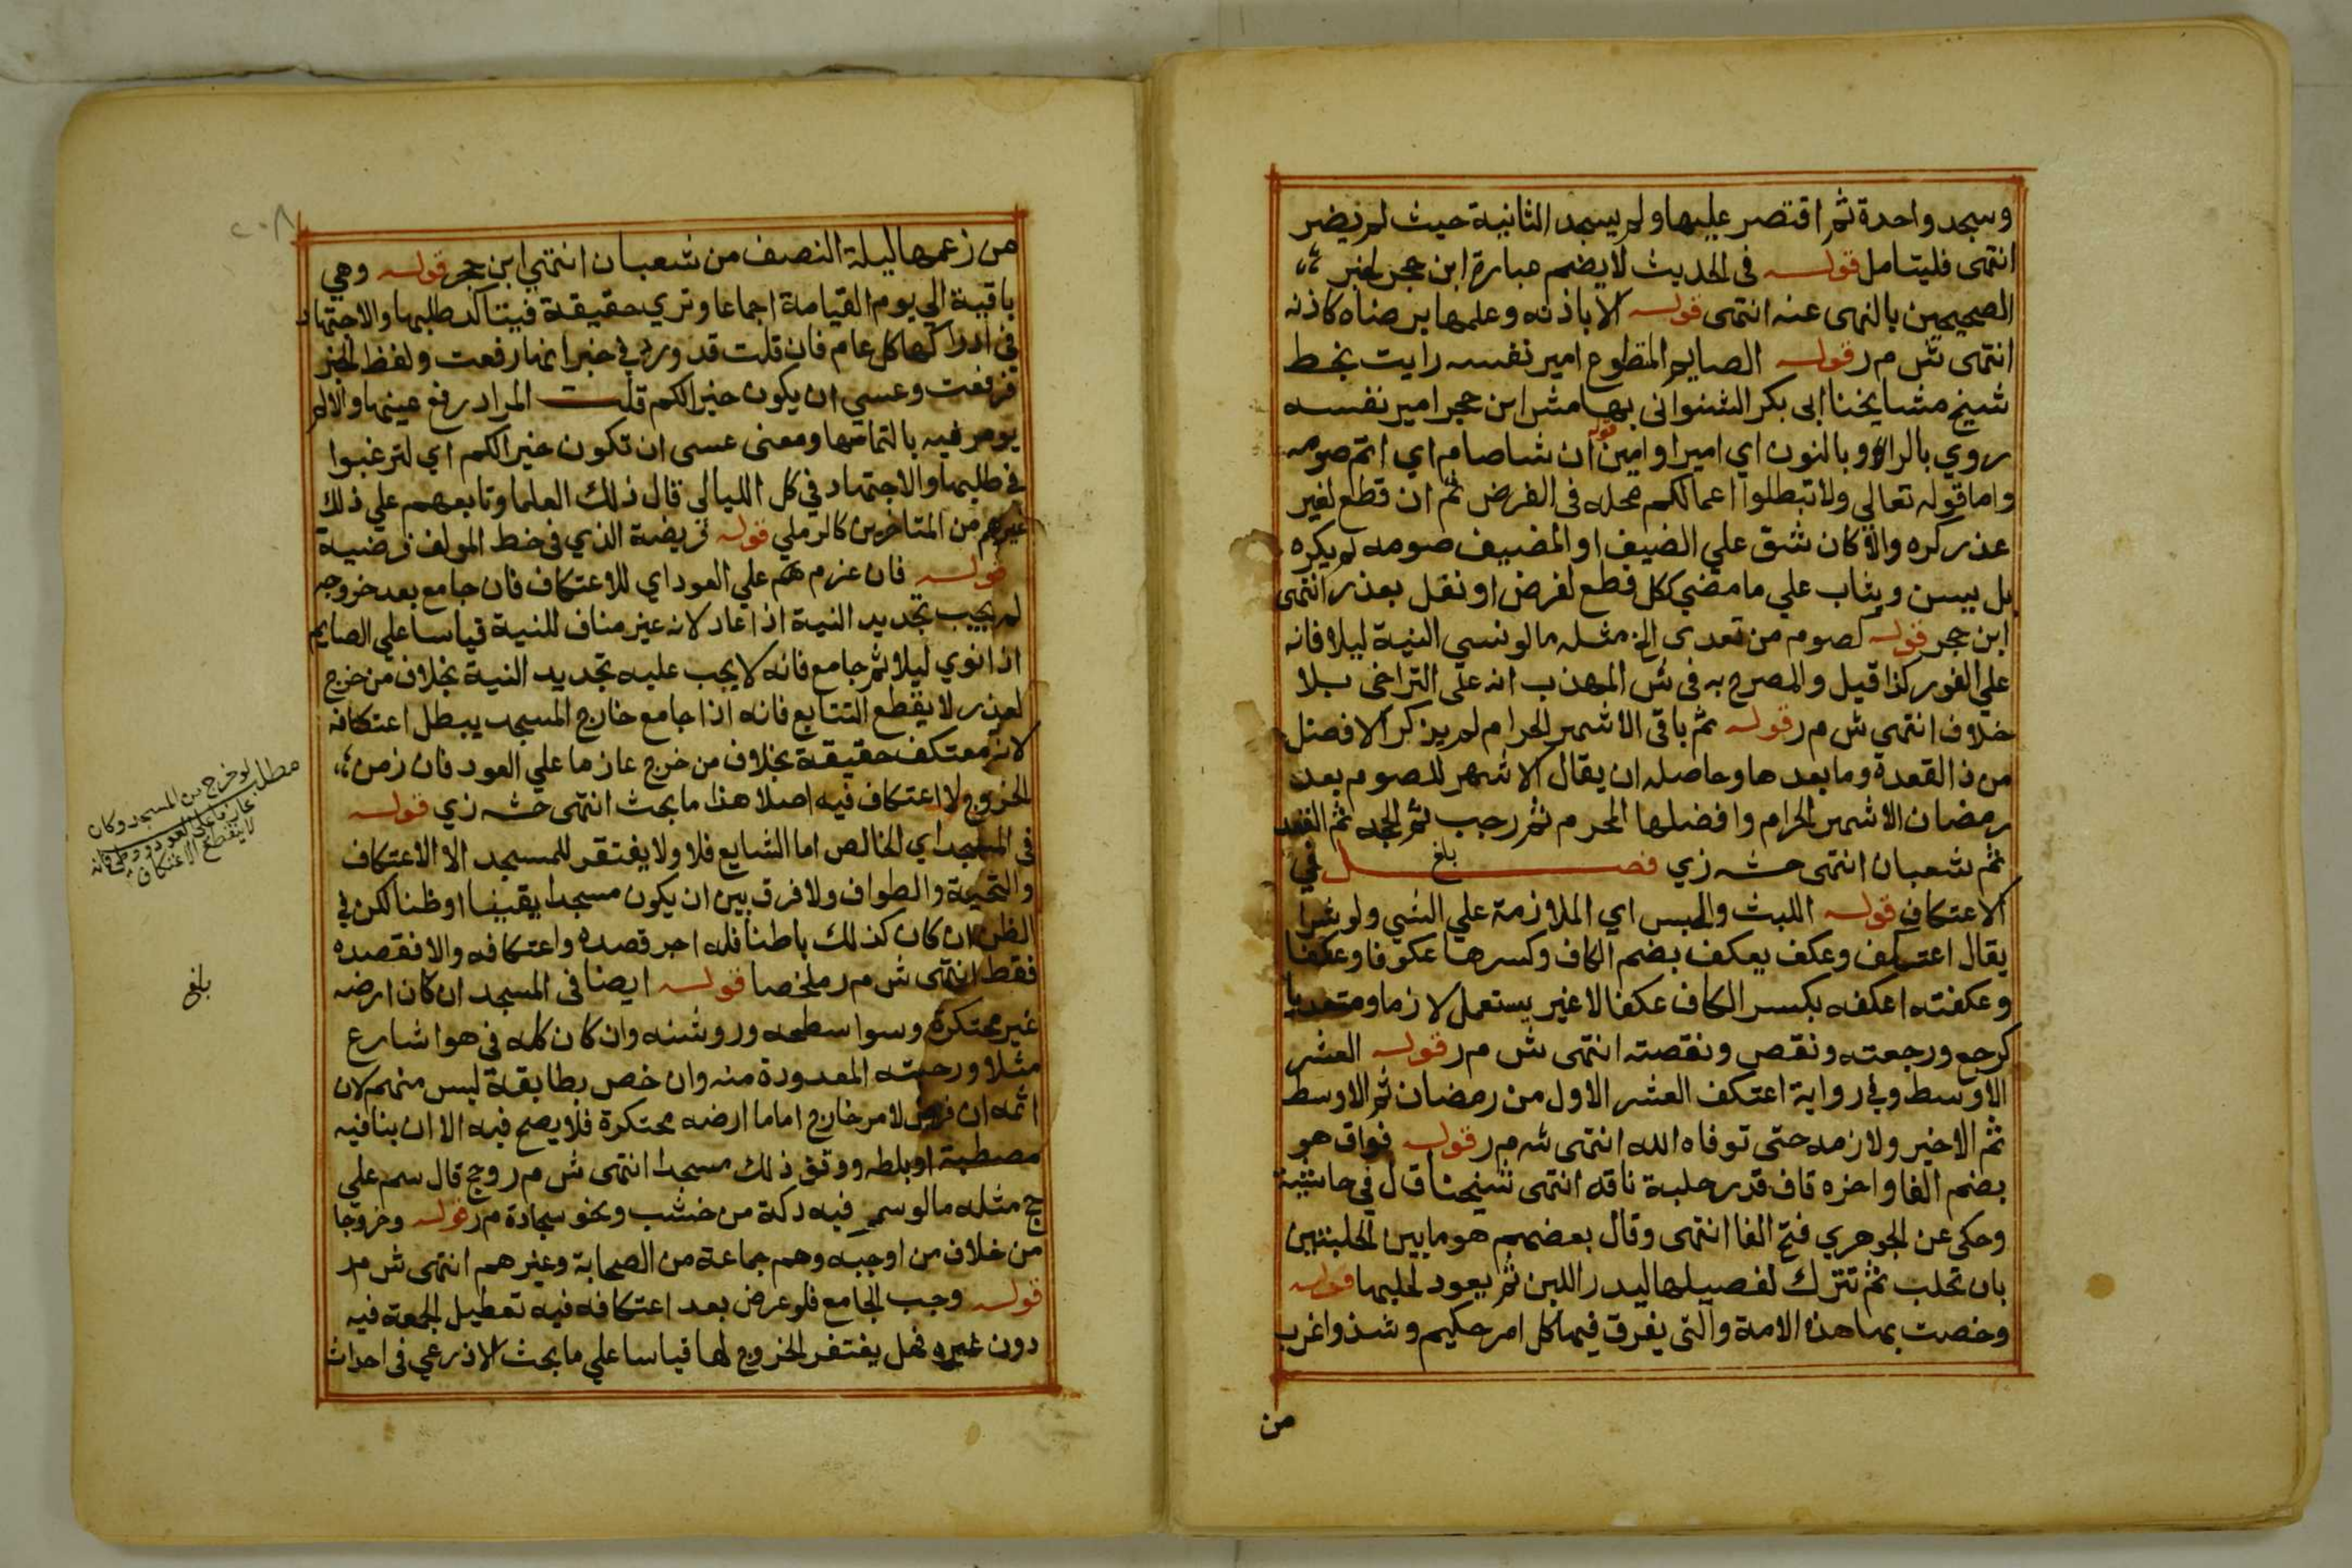 وسجد واحدة ثم اقتصر عليها ولم يسجد الثانية حيث لم يضر
انتهى فليتامل قوله في الحديث لا يضم عبارة ابن حجر لخبر
الصحيحين بالنهى عنه انتهى قوله الا باذنه وعلمها برضاه كاذنه
انتهى ش م ر قوله الصايم المتطوع امير نفسه رايت بخط
شيخ مشايخنا ابى بكر الشنوانى بهامش ابن حجر امير نفسه
روي بالراء وبالنون اي اميرا وامين قوله ان شا صام اي اتم صومه
واما قوله تعالى ولا تبطلوا اعمالكم محله في الفرض ثم ان قطع لغير
عذر كره والا كان شق علي الضيف او المضيف صومه لم يكره
بل يسن ويثاب علي ما مضي ككل قطع لفرض او نفل بعذر انتهى
ابن حجر قوله كصوم من تعدى الخ مثله ما لو نسي النية ليلا فانه
علي الفور كذا قيل والمصرح به في ش المهذب انه على التراخى بلا
خلاف انتهي ش م ر قوله ثم باقى الاشهر الحرام لم يذكر الافضل
من ذا القعدة وما بعدها وحاصله ان يقال الاشهر للصوم بعد
رمضان الاشهر الحرام وافضلها المحرم ثم رجب ثم الحجه ثم القعد
ثم شعبان انتهى حشه زي فصل في
بلغ
الاعتكاف قوله اللبث والحبس اي الملازمة علي الشي ولو شرا
يقال اعتكف وعكف يعكف بضم الكاف وكسرها عكوفا وعكفا
وعكفته اعكفه بكسر الكاف عكفا لا غير يستعمل لازما ومتعديا
كرجع ورجعته ونقص ونقصته انتهى ش م ر قوله العشر
الاوسط وفي رواية اعتكف العشر الاول من رمضان ثم الاوسط
ثم الاخير ولازمه حتى توفاه الله انتهى شه م ر قوله فواق هو
بضم الفا واخره قاف قدر حلبة ناقه انتهى شيخنا ق ل في حاشية
وحكى عن الجوهري فتح الفا انتهى وقال بعضهم هو ما بين الحلبتين
بان تحلب ثم تترك لفصيلها ليدر اللبن ثم يعود لحلبها قوله
وخصت بها هذه الامة والتى يفرق فيها كل امر حكيم وشذ واغرب
من
من زعمها ليلة النصف من شعبان انتهي ابن حجر قوله وهي
باقية الي يوم القيامة اجماعا وتري حقيقة فيتاكد طلبها والاجتهاد
في ادراكها كل عام فان قلت قد ورد في خبر انها رفعت ولفظ الخبر
فرفعت وعسي ان يكون خيرا لكم قلت المراد رفع عينها والا لم
يومر فيه بالتماسها ومعنى عسى ان تكون خيرا لكم اي لترغبوا
في طلبها والاجتهاد في كل الليالي قال ذلك العلما وتابعهم علي ذلك
غيرهم من المتاخرين كالرملي قوله فريضة الذي في خط المولف فرضية
قوله فان عزم هم علي العود اي للاعتكاف فان جامع بعد خروجه
لم يجب تجديد النية اذا عاد لانه غير مناف للنية قياسا علي الصايم
اذا نوي ليلا ثم جامع فانه لا يجب عليه تجديد النية بخلاف من خرج
لعذر لا يقطع التتابع فانه اذا جامع خارج المسجد يبطل اعتكافه
لانه معتكف حقيقة بخلاف من خرج عازما علي العود فان زمن
الخروج لا اعتكاف فيه اصلا هذا ما بحث انتهى حشه زي قوله
في المسجد اي الخالص اما الشايع فلا ولا يفتقر للمسجد الا الاعتكاف
والتحية والطواف ولا فرق بين ان يكون مسجدا يقينا او ظنا لكن في
الظن ان كان كذلك باطنا فله اجر قصده واعتكافه والا فقصده
فقط انتهى ش م ر ملخصا قوله ايضا في المسجد ان كان ارضه
غير محتكرة وسوا سطحه وروشنه وان كان كله في هوا شارع
مثلا ورحبته المعدودة منه وان خص بطايفة ليس منهم لان
اثمه ان فرض لامر خارج اما ما ارضه محتكرة فلا يصح فيه الا ان بنا فيه
مصطبة او بلطه ووقف ذلك مسجدا انتهى ش م ر وحج قال سم على
حج مثله ما لو سمر فيه دكة من خشب ونحو سجادة م ر قوله وخروجا
من خلاف من اوجبه وهم جماعة من الصحابة وغيرهم انتهى ش م ر
قوله وجب الجامع فلو عرض بعد اعتكافه فيه تعطيل الجمعة فيه
دون غيره فهل يغتفر الخروج لها قياسا علي ما بحث الاذرعي في احداث
مطلب لو خرج من المسجد وكان
عازما على العود ووطئ فانه
لا ينقطع الاعتكاف
بلغ
٢٠٨